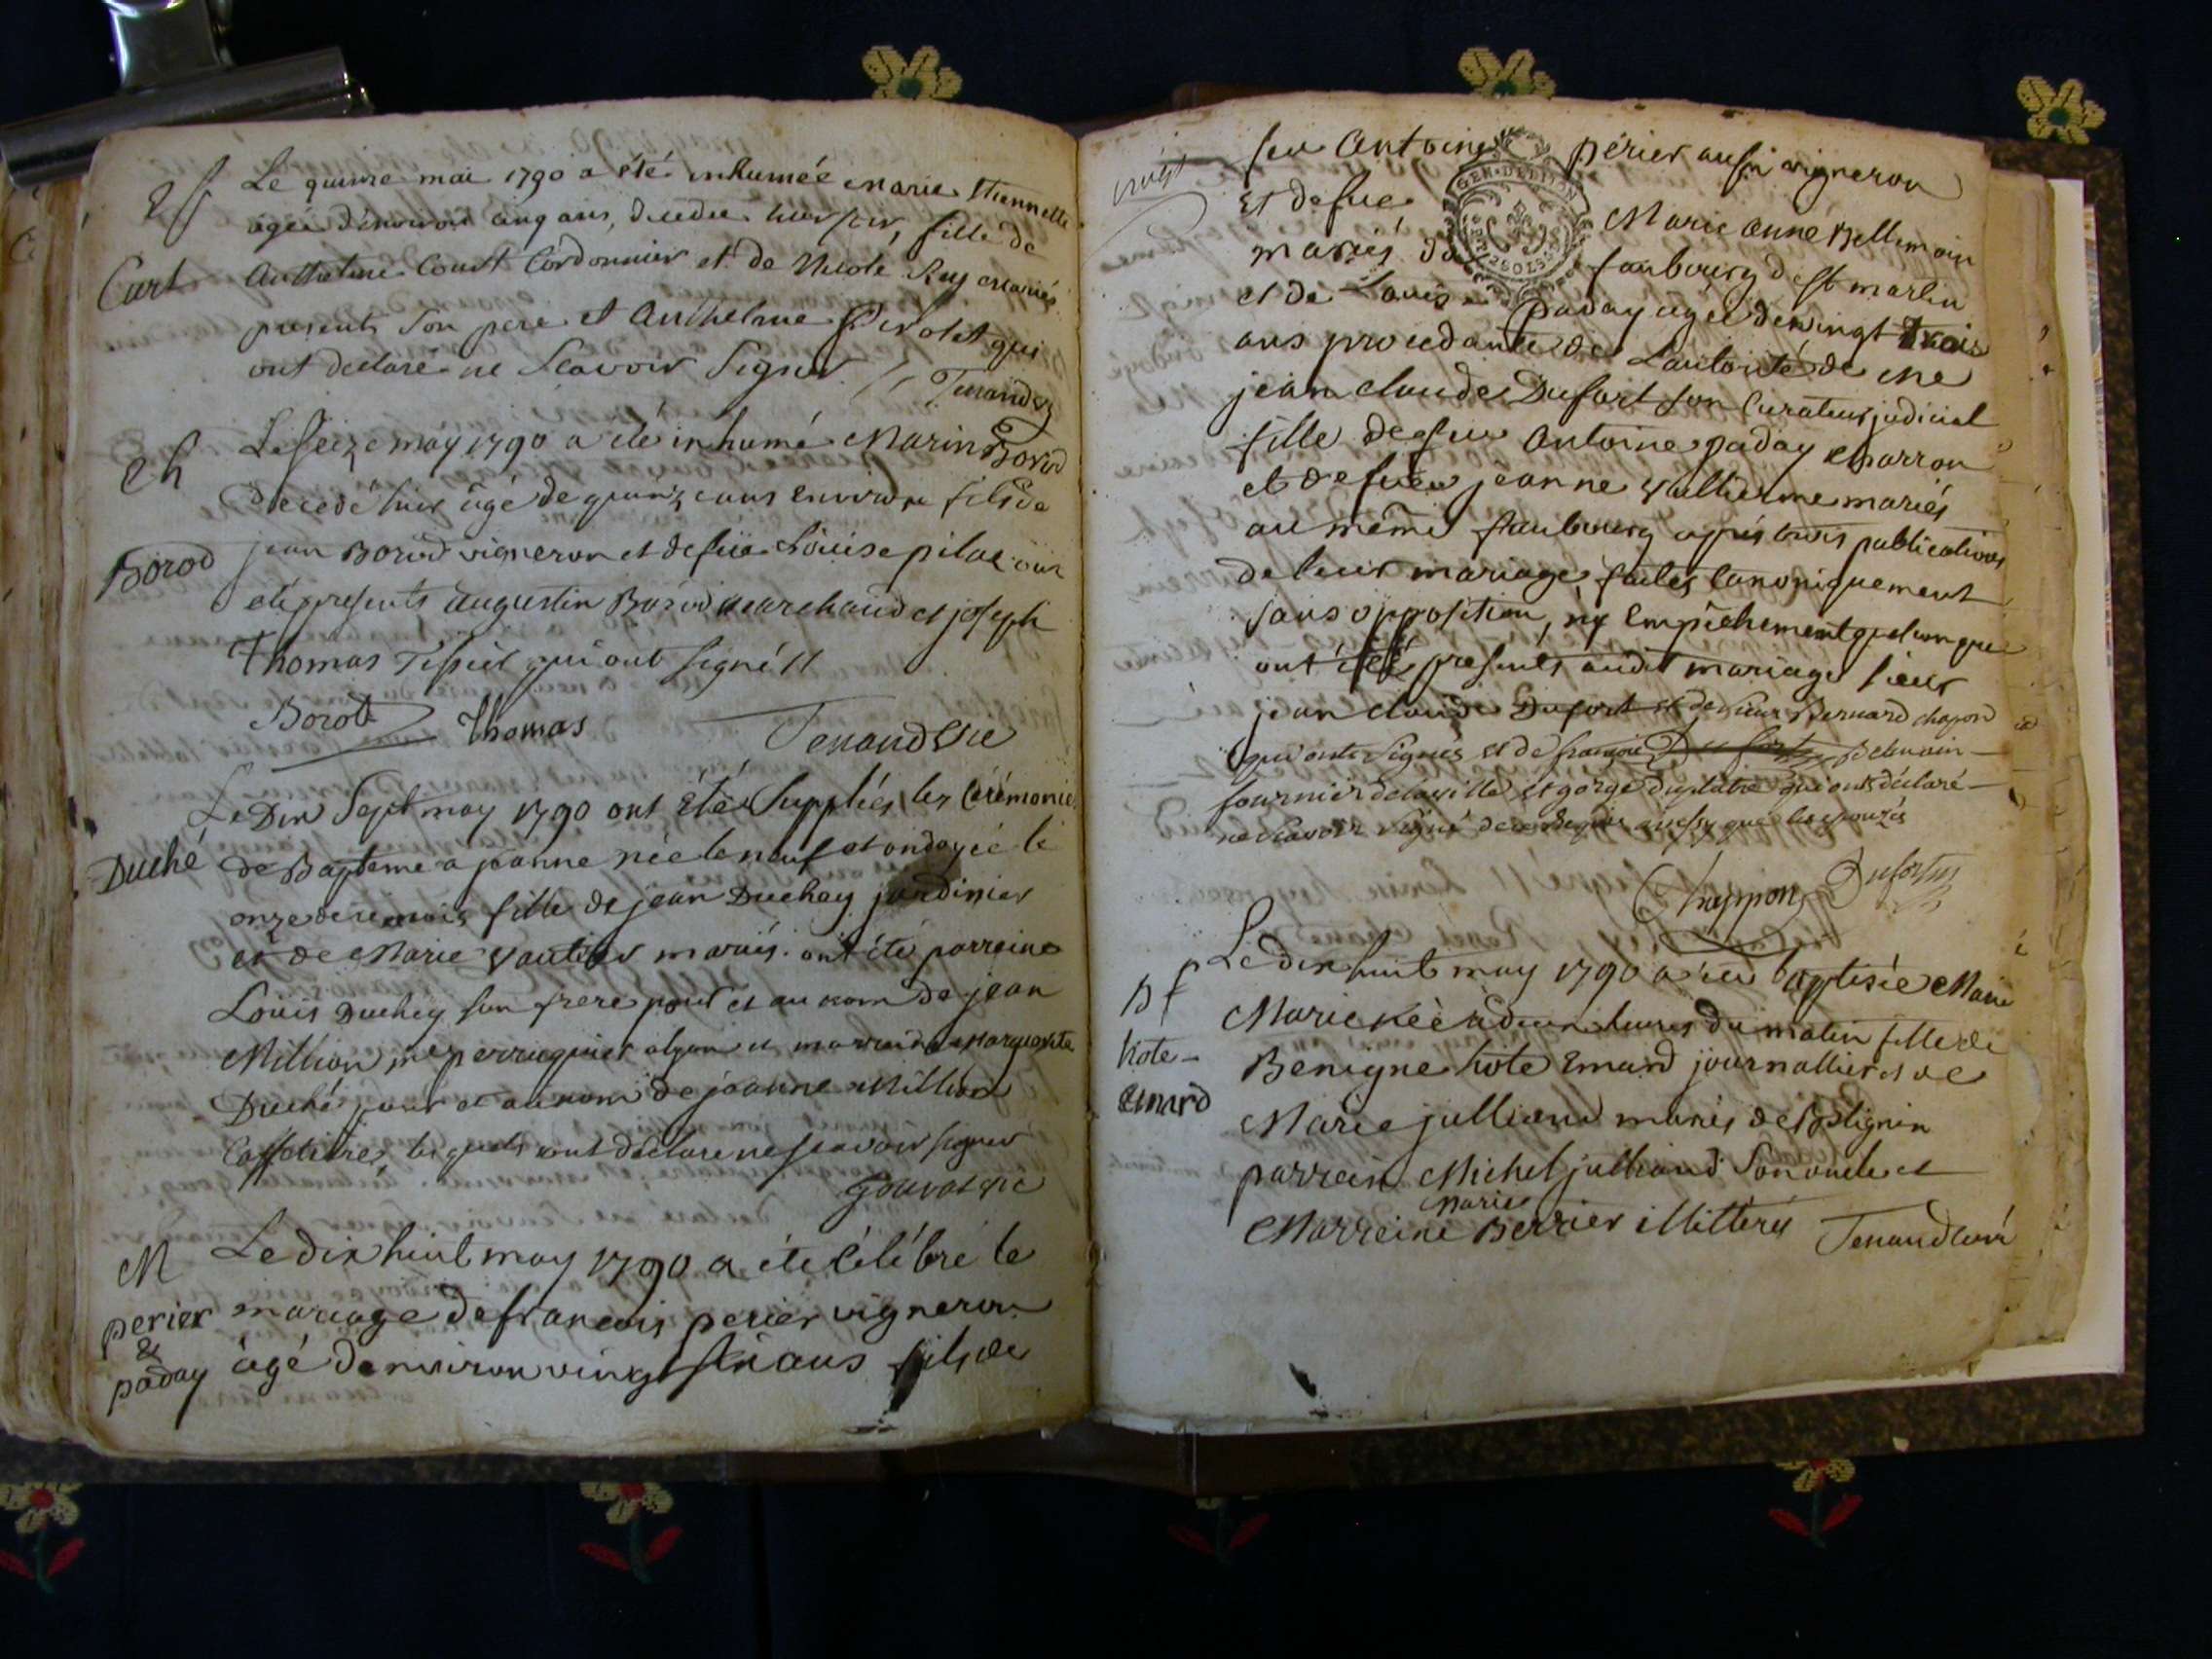 Le quinze mai 1790 a été inhumée marie Etiennette
agée d'environ cinq ans, decedee hier soir, fille de
Curt
Anthelme Court Cordonnier et de Nicole Ruy mariés
presents son pere et Anthelme Perolet qui
ont declaré ne Scavoir Signer. Tenand
Le seize may 1790 a été inhumé Marin Borod
decedé hier âgé de quinze ans environ fils de
Borod
jean Borod vigneron et de füe Louise pilae ont
eté presents augustin Borod marchand et joseph
Thomas Tissier qui ont signé //
Borod Thomas Tenand vic
Le Dix Sept may 1790 ont été Suppléés les Cérémonies
Duché
de Bapteme a jeanne née le neuf et ondoyée le
onze de ce mois fille de jean Duchey jardinier
et de Marie vautier mariés. ont été parreine
Louis Duchey son frere pour et au nom de jean
Million me perruquier a lyon et marreine Marguerite
Duché pour et au nom de jeanne Million
lesquels ont déclaré ne scavoir signer
vic
M
Le dix huit may 1790 a été célébré le
perier
mariage de francois perier vigneron
&
paday
âgé denviron vingt six ans fils de
vingt
feu Antoine périer aussi vigneron
GEN. DE DIJON
et de fue Marie anne Bellemain
mariés du faubourg d st martin
et de Louise paday agée de vingt trois
ans procedante de Lautorité de me
jean claude Dufort son Curateur judicial
fille de feu Antoine paday Charron
et de fueu jeanne vullierme mariés
au même faubourg après trois publications
de leur mariage faites Canoniquement
sans opposition, ny Empêchement quelconque
ont été presents audit mariage sieur
jean claude Dufort et de sieur Bernard chapon
qui onts signés et de françois Belmain
fournier de la ville et gorge duplatre qui onts déclaré
ne scavoir signé de ce requis aussy que les epouzés
Chappon Dufort
Le dix huit may 1790 a été Baptisée Marie
B f
Marie née à deux heures du matin fille de
hote-
Benigne hôte Emard journallier et de
Emard
Marie julliand mariés de
parrein Michel julliand Son oncle et
Marie
Marreine Berrier illitéré Tenand curé